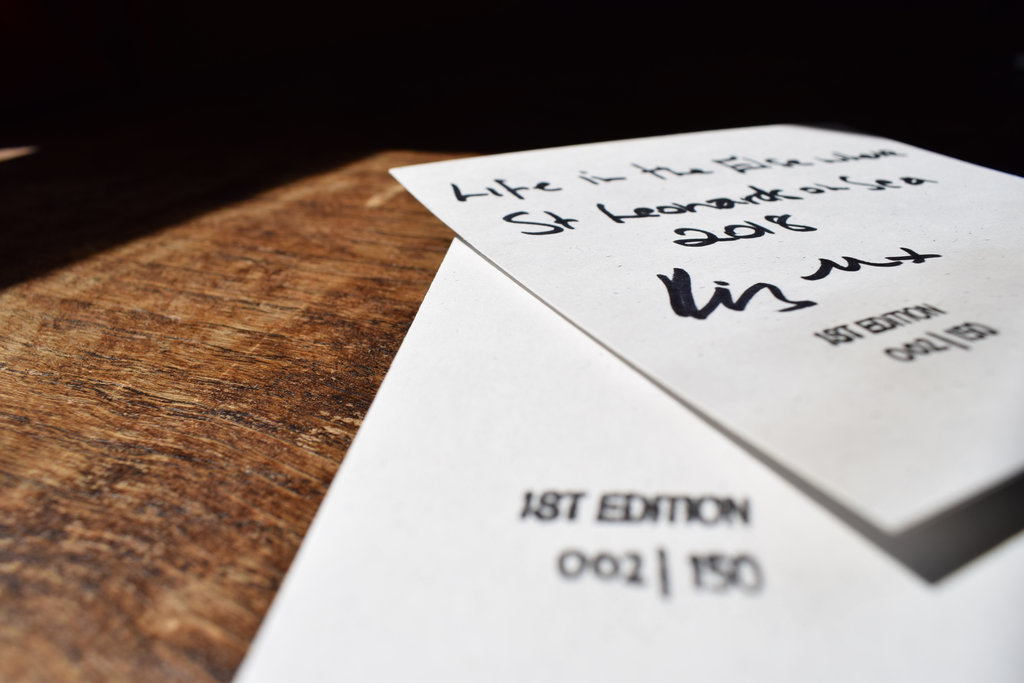 Life in the Elsewhere
St Leonards on Sea
2018
1ST EDITION
002 | 150
1ST EDITION
002 | 150